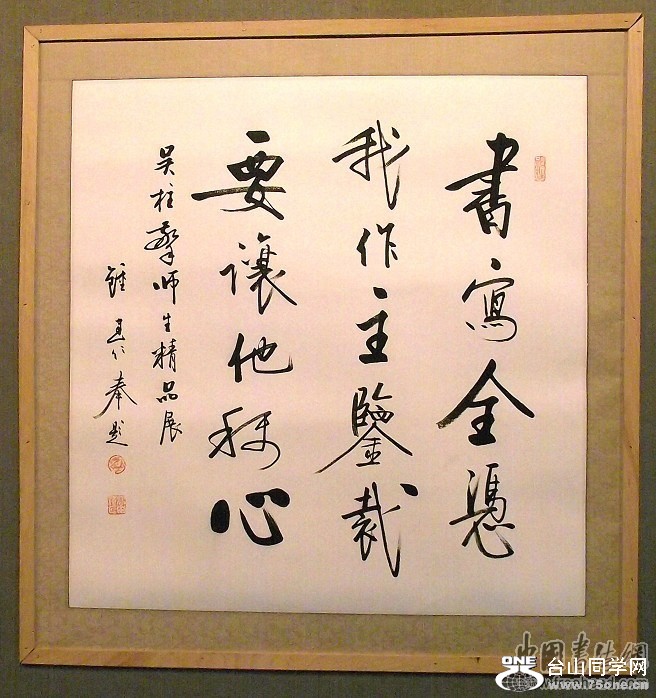 書寫全憑
我作主鑒裁
要讓他稱心
吴柱擎师生精品展
奉题
中国书法網
ONE 台山同学网
www.75one.cn